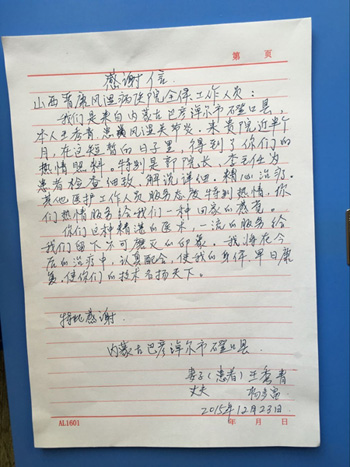 第 页
感谢信
山西晋康风湿病医院全体工作人员:
我们是来自内蒙古巴彦淖尔市磴口县,
本人王秀青,患病风湿类多发,来贵院近半个
月,在这短暂的日子里,得到了你们的
热情照料。特别是郭院长、李主任为
患者检查细致,解说详细,精心治疗。
其他医护工作人员服务态度特别热情,你
们热情服务给我们一种回家的感觉。
你们这种精湛的医术,一流的服务给
我们留下不可磨灭的印象。我将在今
后的治疗中,认真配合,使我的身体早日康
复,使你们的技术名扬天下。
特此感谢
内蒙古巴彦淖尔市磴口县
妻子(患者)王秀青
丈夫 杨
2015年12月23日.
AL1601 年 月 日